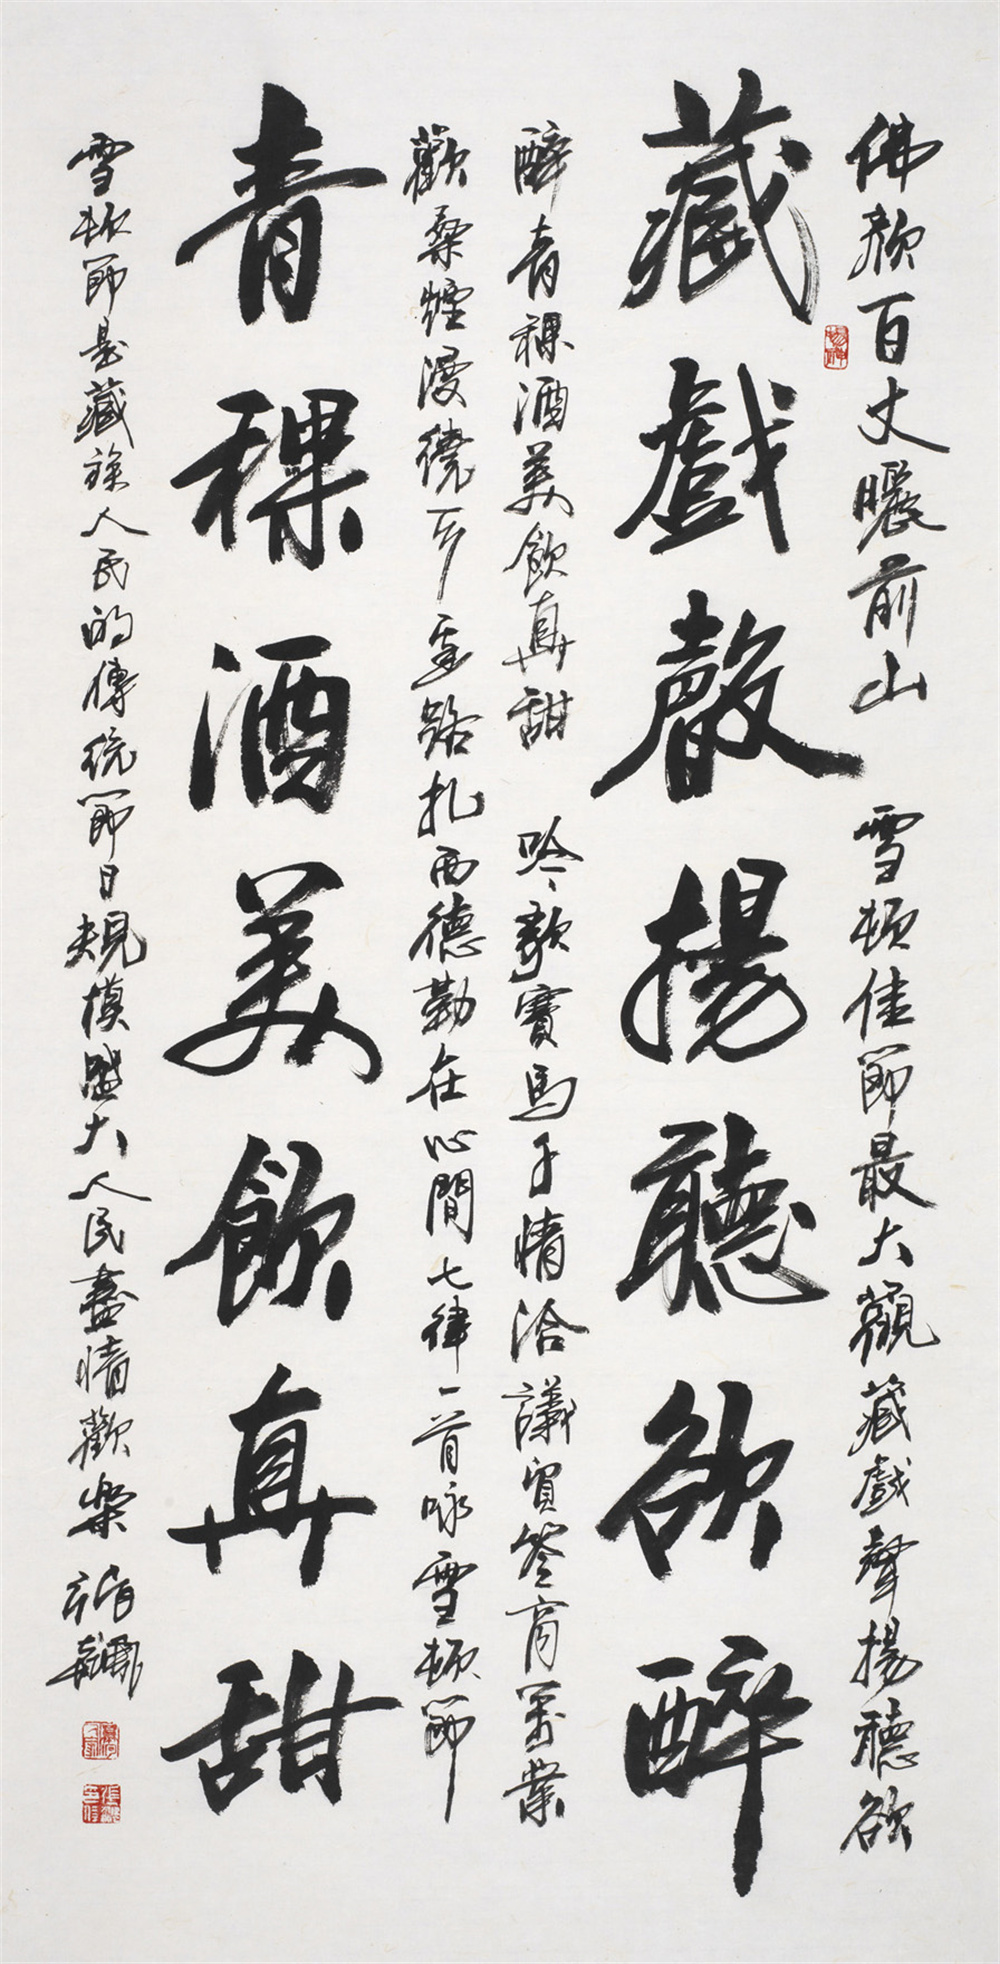 佛顏百丈曬前山 雪頓佳節最大觀藏戲聲揚聽欲
藏戲聲揚聽欲醉
醉青稞酒美飲真甜 吟歌賽馬千情洽議貿簽商萬業
歡桑煙漫繞千重路扎西德勒在心間七律一首咏雪頓節
青稞酒美飲真甜
雪頓節是藏族人民的傳統節日規模盛大人民盡情歡樂